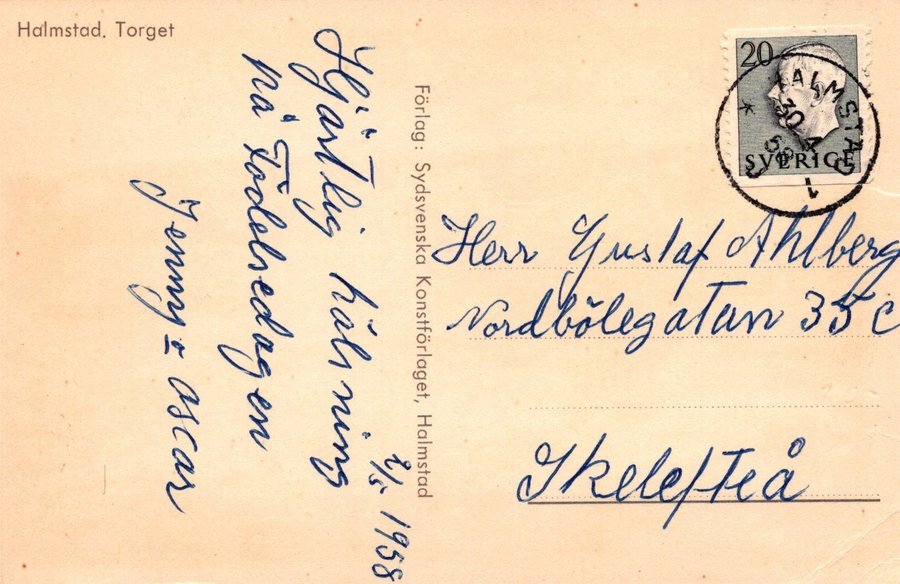 Halmstad. Torget
Hjärtlig hälsning
på Födelsedagen
Jenny o ascar
2/5 1958
Förlag: Sydsvenska Konstförlaget, Halmstad
20
SVERIGE
HALMSTAD 1
30 4 58
Herr Gustaf Ahlberg
Nordbölegatan 35 C
Skelefteå